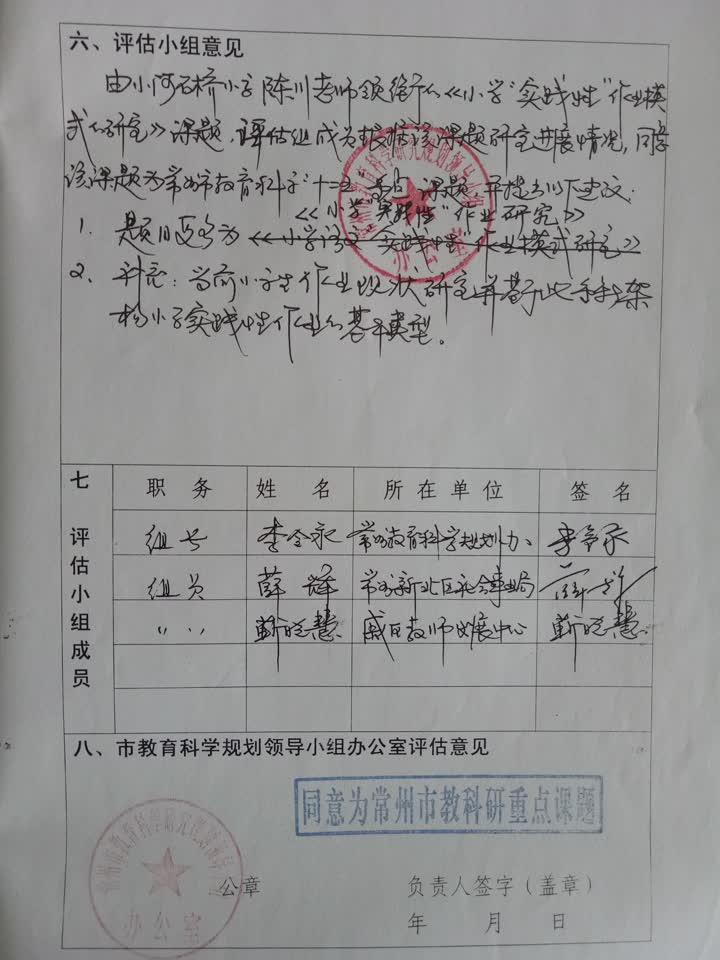 六、评估小组意见
由小河石桥小学陈川老师领衔的《小学“实践性”作业模
式的研究》课题，评估组成员根据该课题研究进展情况，同意
该课题为常州市教育科学“十二五”课题，并提出以下建议：
《小学“实践性”作业研究》
1. 题目更名为《小学语文“实践性”作业模式研究》
2. 补充：当前小学生作业现状研究并基于此来架
构小学实践性作业的基本类型。
七 评估小组成员
职 务 姓 名 所 在 单 位 签 名
组长 李全永 常州教育科学规划办 李全永
组员 薛辉 常州新北区社会事业局 薛辉
〃 靳晓慧 戚区教师发展中心 靳晓慧
八、市教育科学规划领导小组办公室评估意见
同意为常州市教科研重点课题
公章 负责人签字（盖章）
年 月 日
办公室